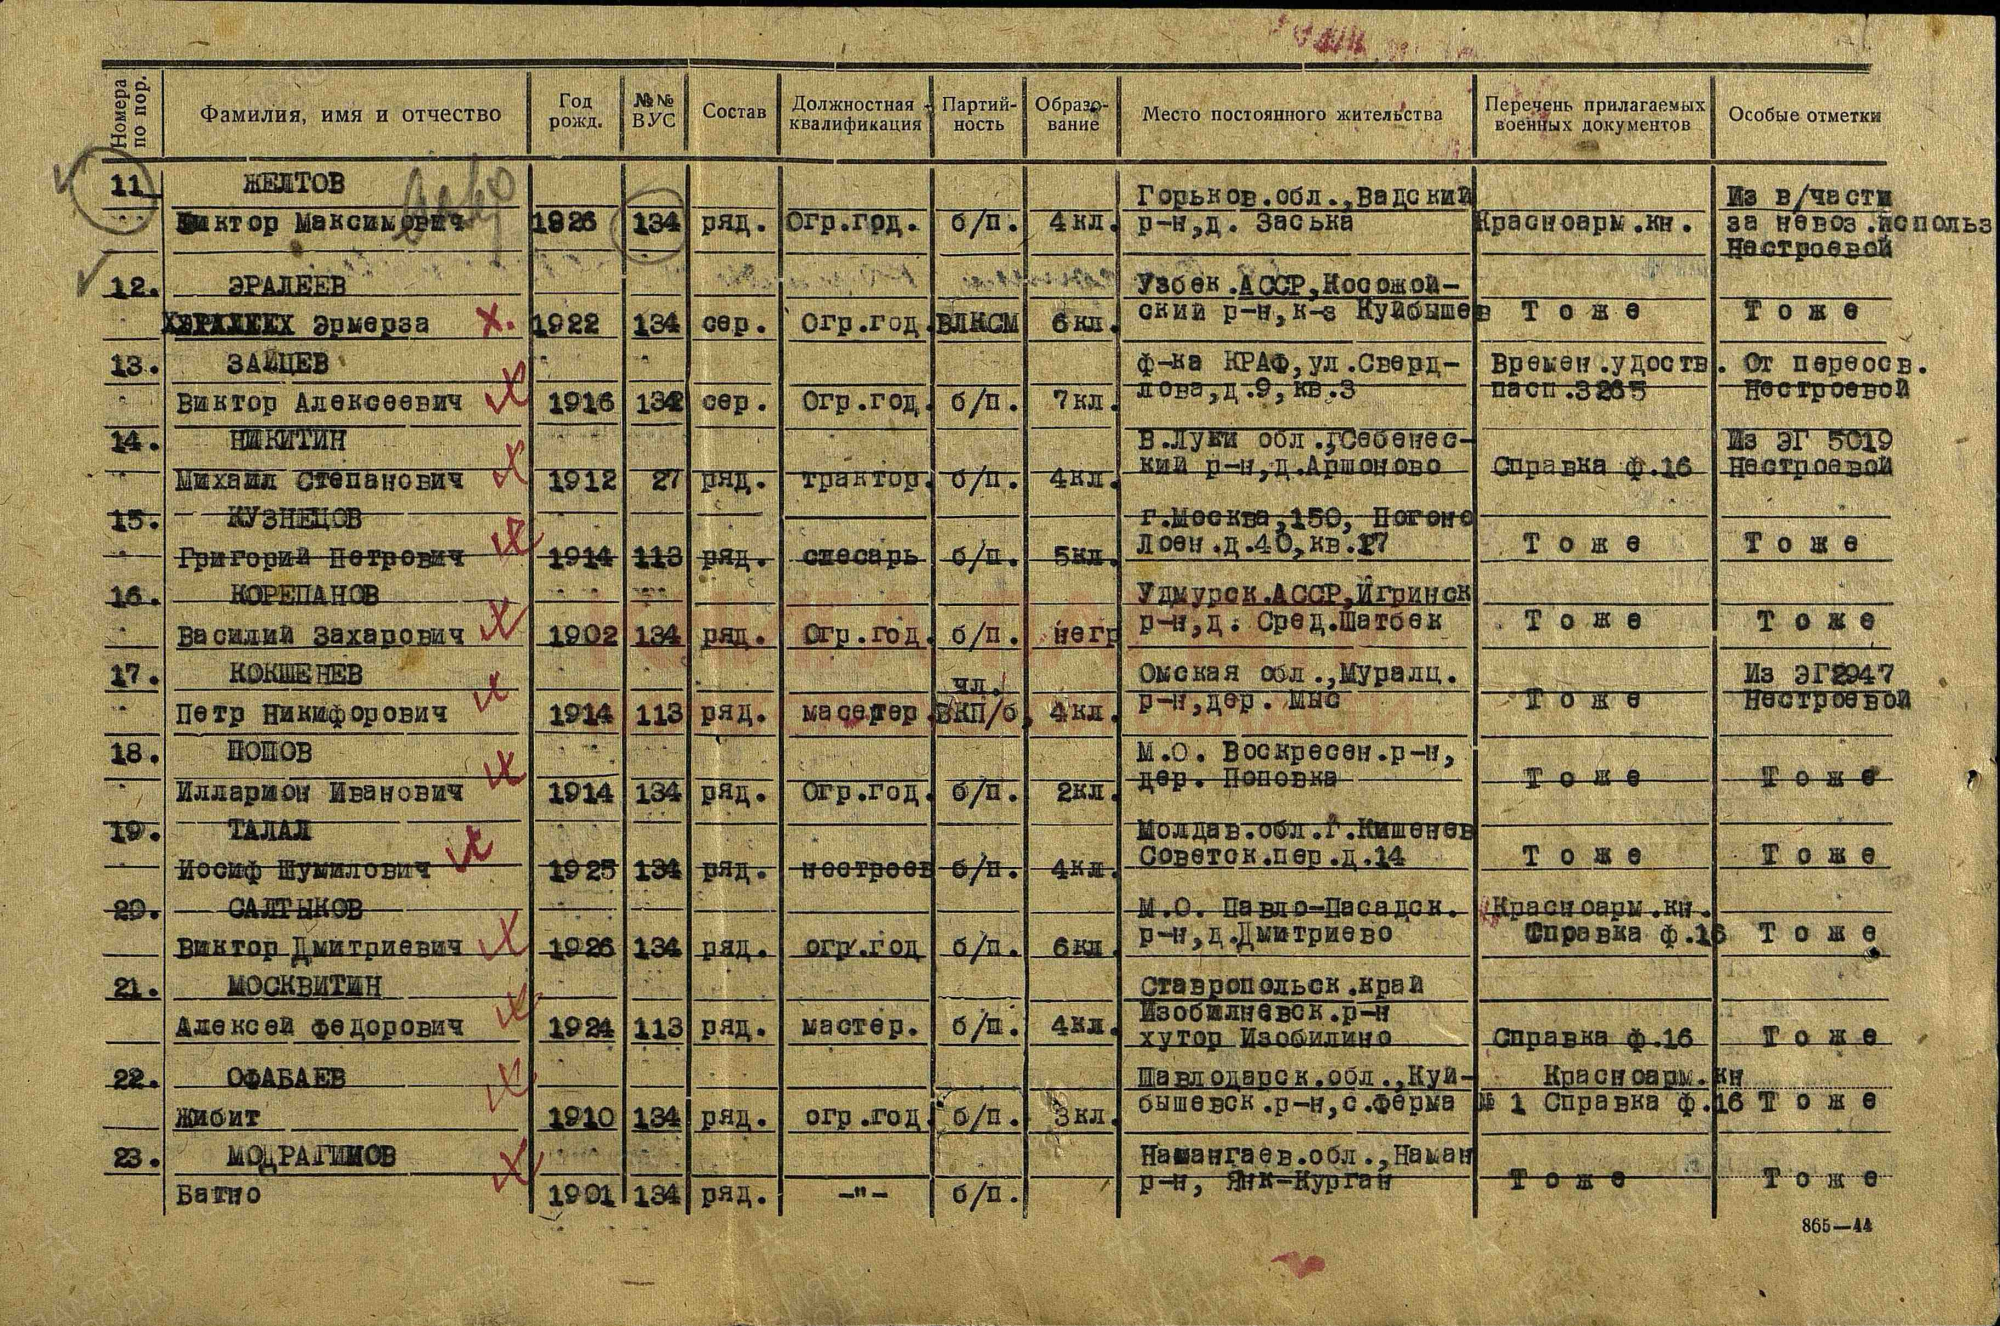 Номера по пор. Фамилия, имя и отчество Год рожд. №№ ВУС Состав Должностная квалификация Партий-ность Образо-вание Место постоянного жительства Перечень прилагаемых военных документов Особые отметки
11 ЖЕЛТОВ Горьков.обл.,Вадский Из в/части
Виктор Максимович 1926 134 ряд. Огр.год. б/п. 4кл. р-н,д. Заська Красноарм.кн. за невоз.использ
Нестроевой
12. ЭРАЛЕЕВ Узбек.АССР,Косожой-
Эрмерза х. 1922 134 сер. Огр.год. ВЛКСМ 6кл. ский р-н,к-з Куйбышев Тоже Тоже
13. ЗАЙЦЕВ ф-ка КРАФ,ул.Сверд- Времен.удоств. От переосв.
Виктор Алексеевич 1916 132 сер. Огр.год. б/п. 7кл. лова,д.9,кв.3 пасп.3265 Нестроевой
14. НИКИТИН В.Луки обл.,гСебенес- Из ЭГ 5019
Михаил Степанович 1912 27 ряд. трактор. б/п. 4кл. кий р-н,д.Аршоново Справка ф.16 Нестроевой
15. КУЗНЕЦОВ г.Москва,150, Погоно
Григорий Петрович 1914 113 ряд. слесарь б/п. 5кл. Лоен.д.40,кв.17 Тоже Тоже
16. КОРЕПАНОВ Удмурск.АССР,Игринск
Василий Захарович 1902 134 ряд. Огр.год. б/п. негр р-н,д. Сред.Шатбек Тоже Тоже
17. КОКШЕНЕВ чл. Омская обл.,Муралц. Из ЭГ2947
Петр Никифорович 1914 113 ряд. ВКП/б, 4кл. р-н,дер. Мыс Тоже Нестроевой
18. ПОПОВ М.О. Воскресен.р-н,
Илларион Иванович 1914 134 ряд. Огр.год. б/п. 2кл. дер. Поповка Тоже Тоже
19. ТАЛАЛ Молдав.обл.г.Кишенев
Иосиф Шумилович 1925 134 ряд. нестроев б/п. 4кл. Советск.пер.д.14 Тоже Тоже
20. САЛТЫКОВ М.О. Павло-Пасадск. Красноарм.кн.
Виктор Дмитриевич 1926 134 ряд. огр.год б/п. 6кл. р-н,д.Дмитриево Справка ф.16 Тоже
21. МОСКВИТИН Ставропольск.край
Изобилневск.р-н
Алексей Федорович 1924 113 ряд. мастер. б/п. 4кл. хутор Изобилино Справка ф.16 Тоже
22. ОФАБАЕВ Павлодарск.обл.,Куй- Красноарм.кн
Жибит 1910 134 ряд. огр.год б/п. 3кл. бышевск.р-н,с.ферма № 1 Справка ф.16 Тоже
23. МОДРАГИМОВ Намангаев.обл.,Наман
Батно 1901 134 ряд. -"- б/п. р-н, Янк-Курган Тоже Тоже
865—44